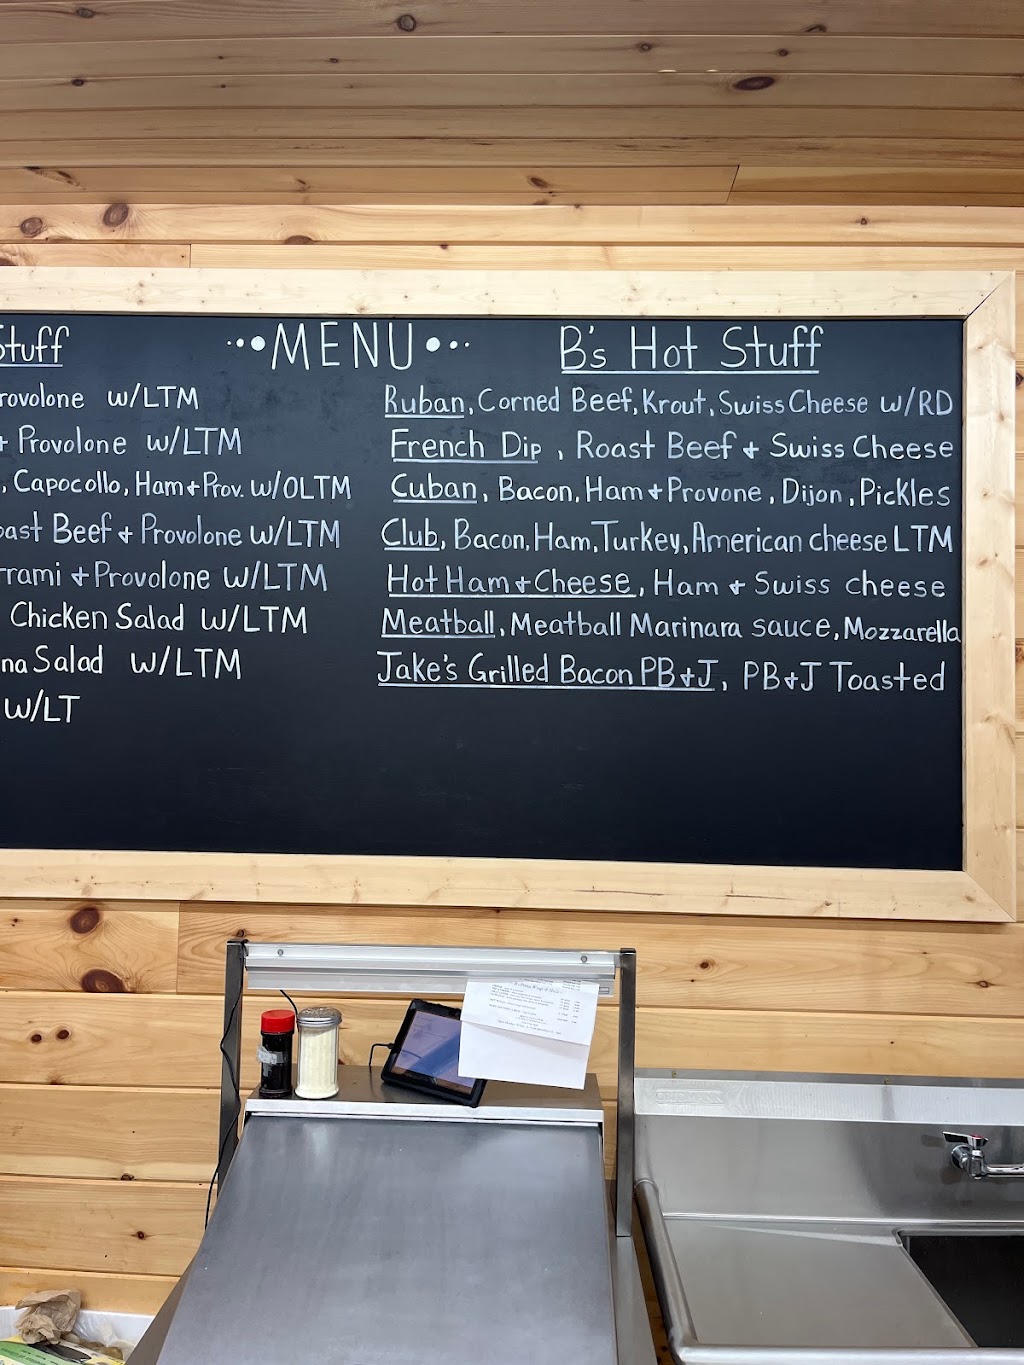 Stuff
•••MENU•••
B's Hot Stuff
Provolone w/LTM
+ Provolone w/LTM
, Capocollo, Ham + Prov. w/OLTM
Roast Beef + Provolone w/LTM
+ Provolone w/LTM
Chicken Salad w/LTM
Salad w/LTM
w/LT
Ruban, Corned Beef, Krout, Swiss Cheese w/RD
French Dip, Roast Beef + Swiss Cheese
Cuban, Bacon, Ham + Provone, Dijon, Pickles
Club, Bacon, Ham, Turkey, American cheese LTM
Hot Ham + Cheese, Ham + Swiss cheese
Meatball, Meatball Marinara sauce, Mozzarella
Jake's Grilled Bacon PB+J, PB+J Toasted